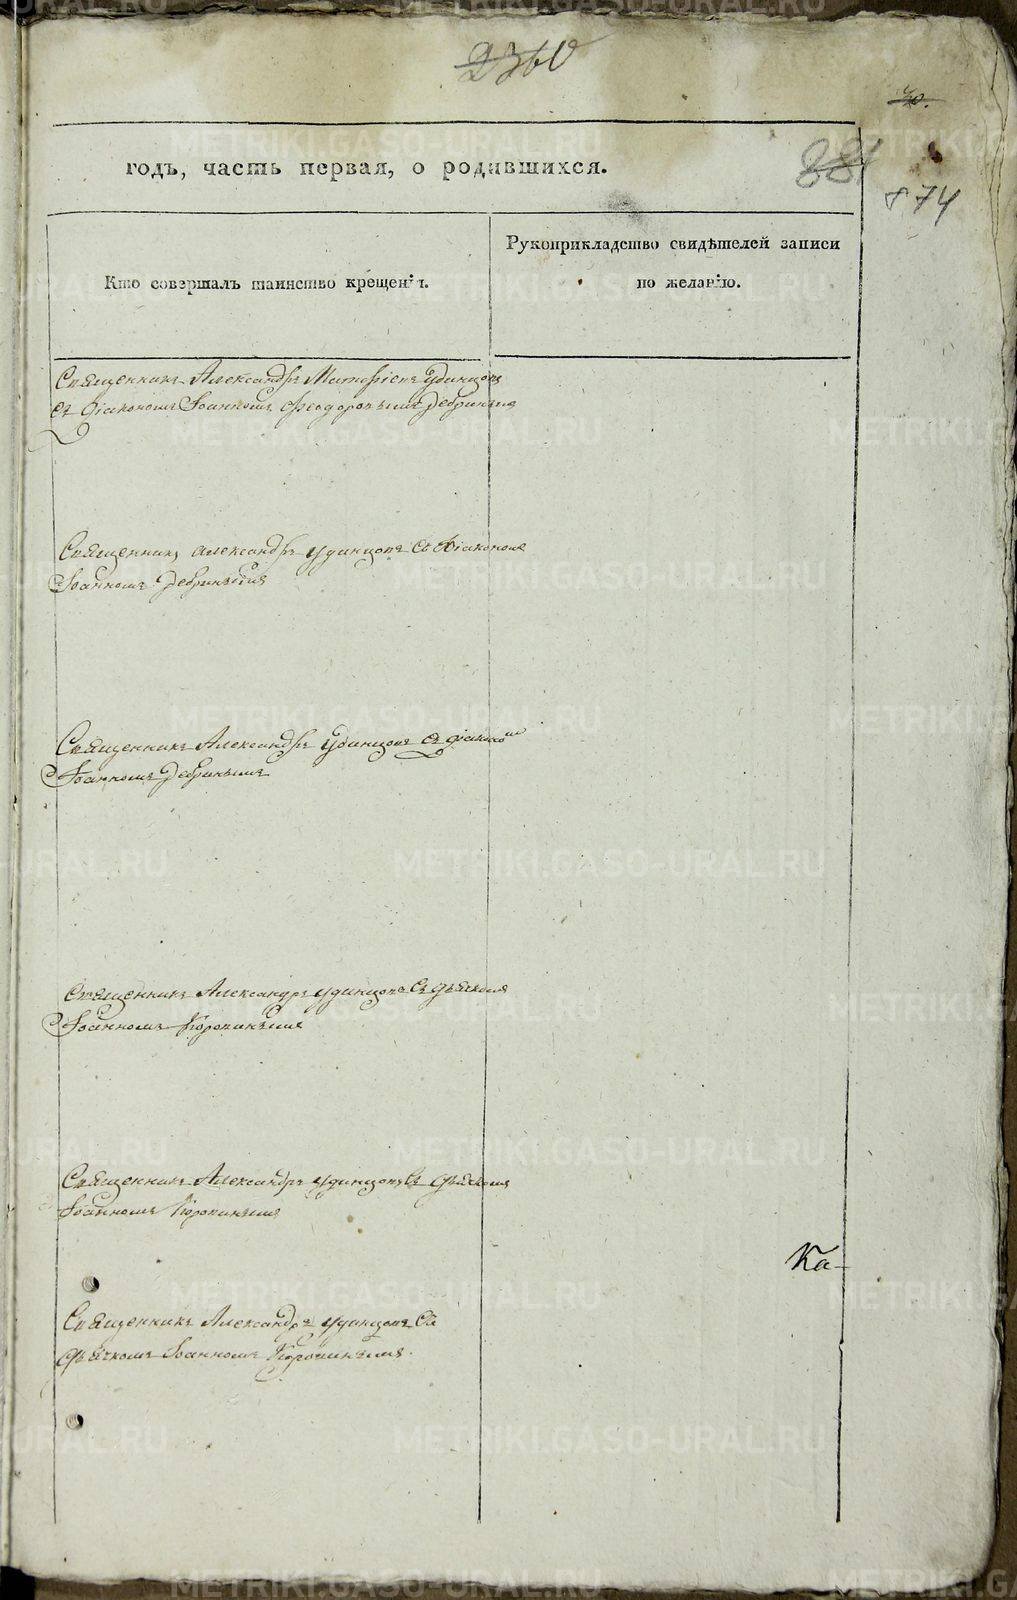 2360
30.
годъ, часть первая, о родившихся.
881
874
Кто совершалъ таинство крещенія.
Рукоприкладство свидѣтелей записи
по желанію.
Священникъ Александръ Матѳіевъ Удинцовъ
съ діакономъ Іоанномъ Ѳеодоровымъ
Священникъ Александръ Удинцовъ съ діакономъ
Іоанномъ
Священникъ Александръ Удинцовъ съ діакономъ
Іоанномъ
Священникъ Александръ Удинцовъ съ дьячкомъ
Іоанномъ
Священникъ Александръ Удинцовъ съ дьячкомъ
Іоанномъ
Ка-
Священникъ Александръ Удинцовъ съ
дьячкомъ Іоанномъ
METRIKI.GASO-URAL.RU